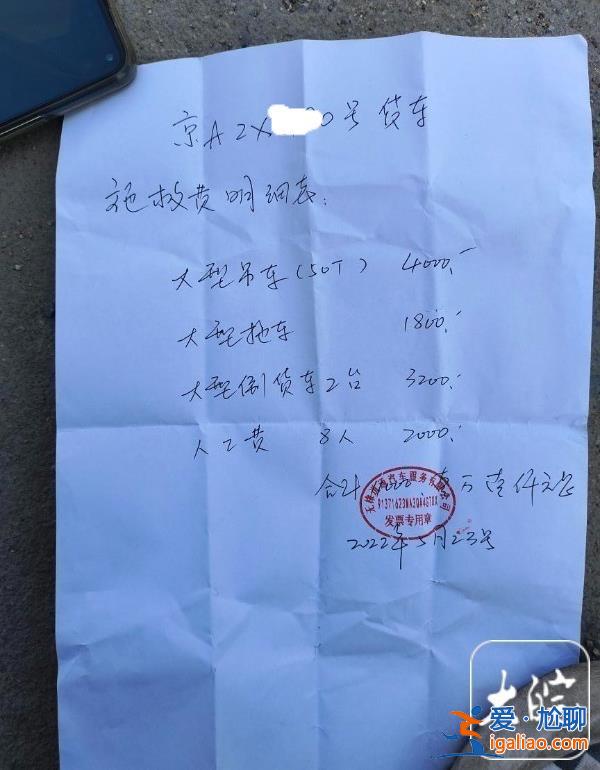 京A 2X 0号货车
施救费明细表:
大型吊车(50T) 4000.-
大型拖车 1800.-
大型倒货车2台 3200.-
人工费 8人 2000.-
合计 壹万壹仟元整
汽车服务有限公司
发票专用章
2022年5月23号
大皖
爱·尬聊
igaliao.com